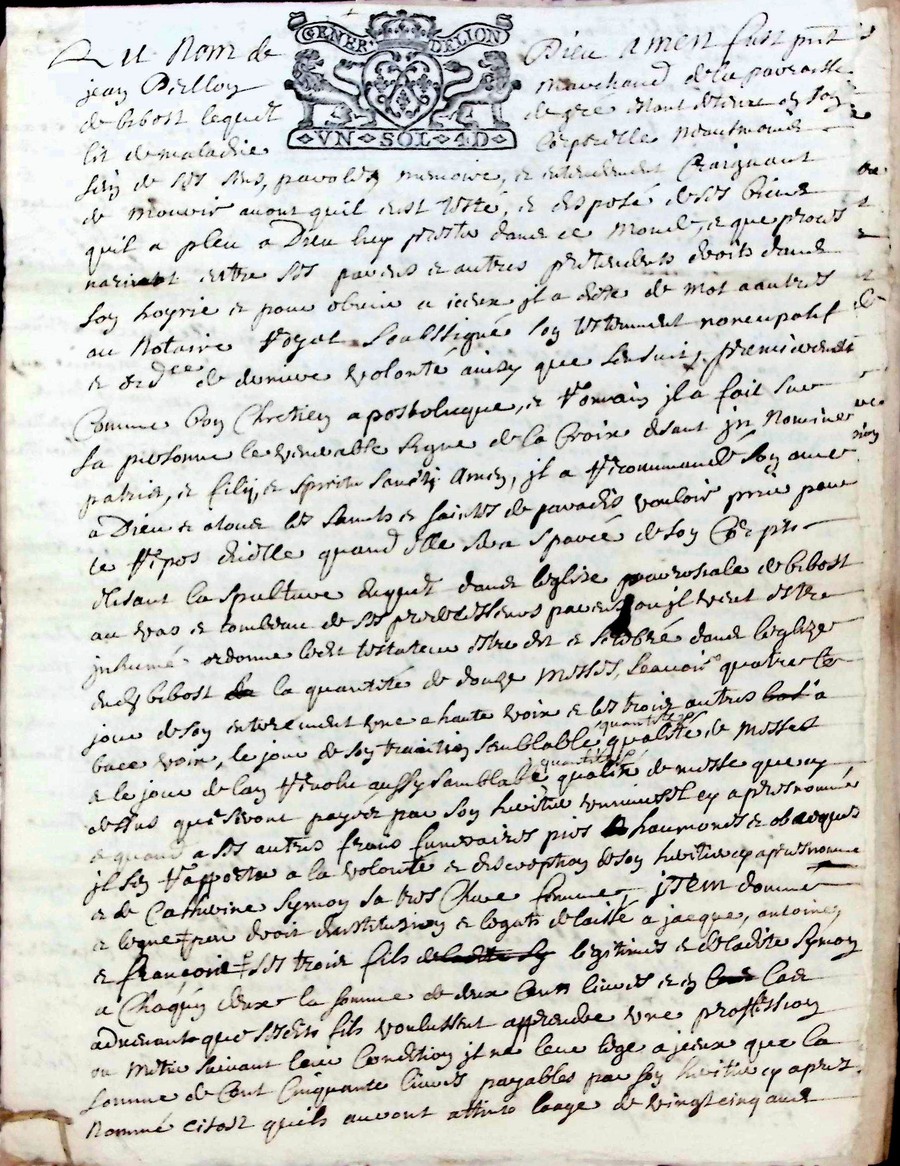 GENER. DELION
VN SOL 4D
Au Nom de Dieu amen fust pnt
jean Pilloy marchand de la parroisse
de bibost lequel de gre estant detenu en son
lit de maladie Corporelle neantmoins
sein de ses sens, parolle, memoire, et entendement Craignant
de mourir avant quil eust testé, et disposé de ses biens
quil a pleu a Dieu luy prester dans ce monde, et que proces
narivat entre ses parens et autres pretendents droits dans
son hoyrie et pour obvier a iceux jl a dicté de mot a autres
au Notaire Royal Soubssigné son testement noncupatif
et ord.ce de derniere volonté ainsy que sensuit, premierement
Comme bon Chretien apostolicque, et Romain jl a fait sur
sa personne le venerable signe de la Croix disant jn Nomine
patris, et filij, et spiritu sancti Amen, jl a Recommandé son ame
a Dieu et a tous les saincts et saintes de paradis vouloir prier pour
le Repos dicelle quand elle sera sparée de son Corps
elisant la spulture duquel dans leglise parrossiale de bibost
au vas et tombeau de ses predecesseurs parens ou jl veut estre
jnhumé ordonne ledit testateur estre dit et celebré dans leglize
dud bibost la quantité de douze messes, scavoir quatre le
jour de son enterrement une a haute voix et les trois autres a
bace voix, le jour de son semblable quantité qualité de messes
et le jour de lan Revolu aussy samblable quantité qualité de messe que cy
dessus que seront payez par son heritier universel cy apres nommé
et quand a ses autres frais funeraires pies haumones et obseques
jl sen Rapporte a la volonté et discreption de son heritier cy apres nomme
et de Catherine Symon sa tres Chere femme, jtem donne
et legue par droit dinstitution et legats delaissé a jacque, antoine,
et françois ses trois fils legitimes et de ladite Symon
a Chaqun deux la somme de deux Cens livres et en Cas
advenant que sesdits fils voulussent apprendre une proffession
ou metier suivant leur Condition jl ne leur lege a jceux que la
somme de Cent Cinquante livres payables par son heritier cy apres
Nommé citost quils auront atteint laage de vingt cinq ans